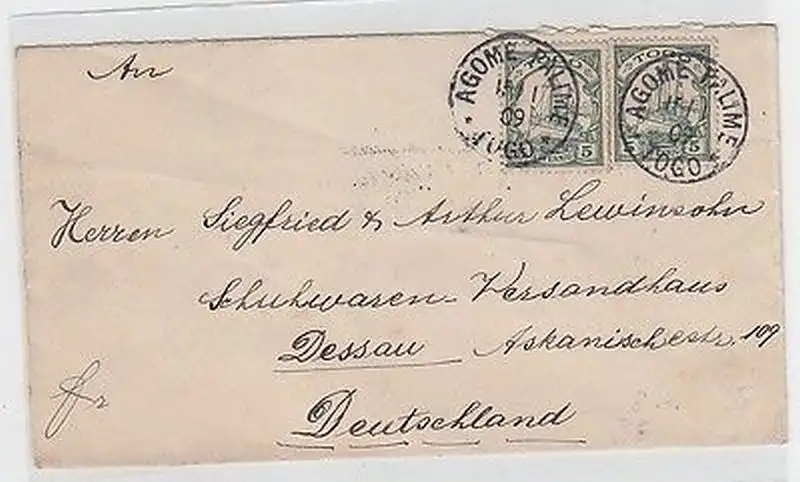 TOGO TOGO
AGOME PALIME AGOME PALIME
09 09
TOGO TOGO
5 5 5
An
Herren Siegfried & Arthur Lewinsohn
Schuhwaren-Versandhaus
Dessau Askanischestr. 109
Deutschland
fr